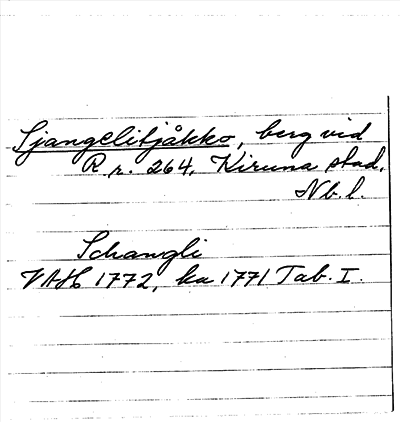 Sjangelitjåkko, berg vid
R r. 264, Kiruna stad,
Nb. l.
Schangli
VAH 1772, ka 1771 Tab. I.